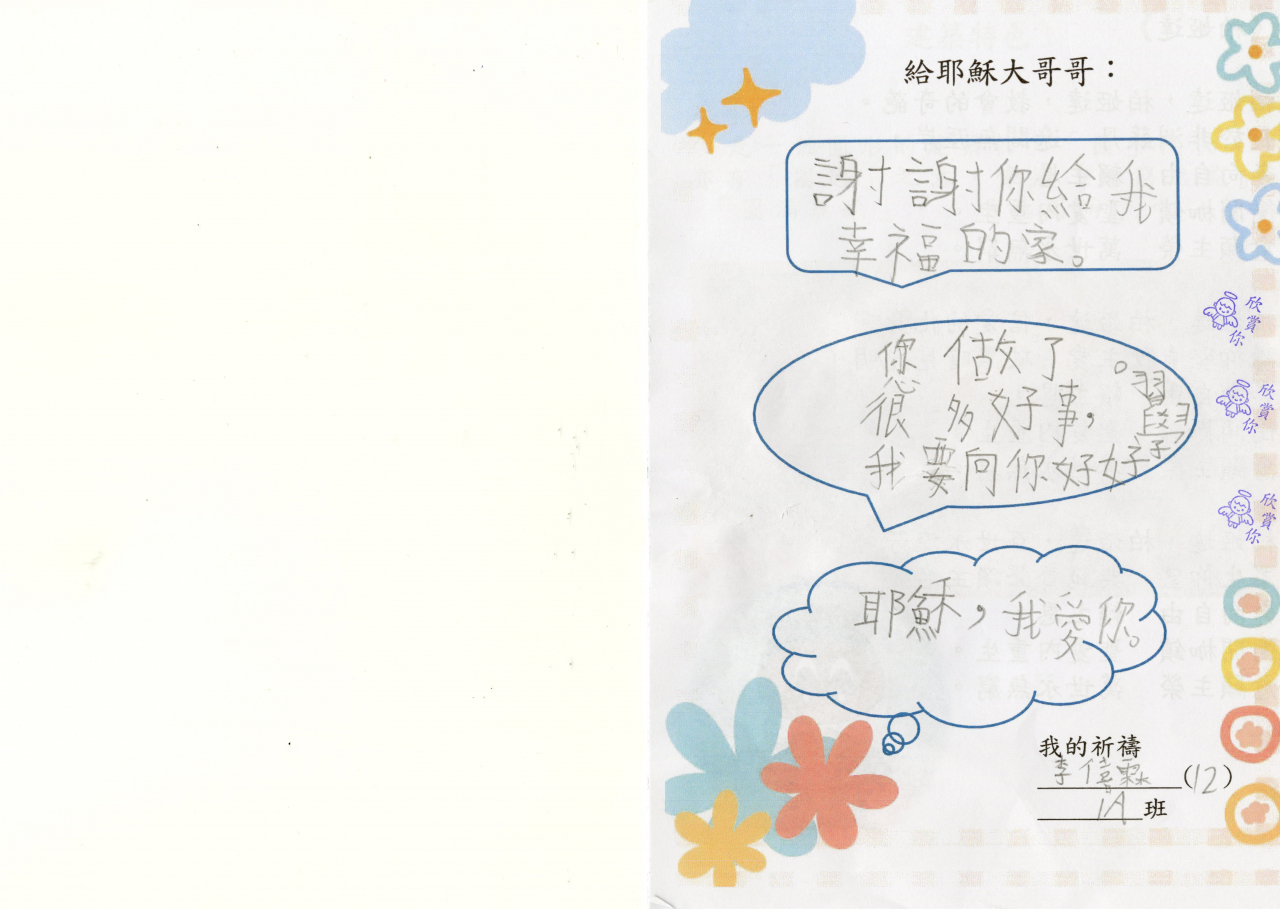 給耶穌大哥哥：
謝謝你給我
幸福的家。
您做了
很多好事，
我要向你好好
學習。
耶穌，我愛你。
欣賞你
欣賞你
欣賞你
我的祈禱
李僖霖(12)
1A班